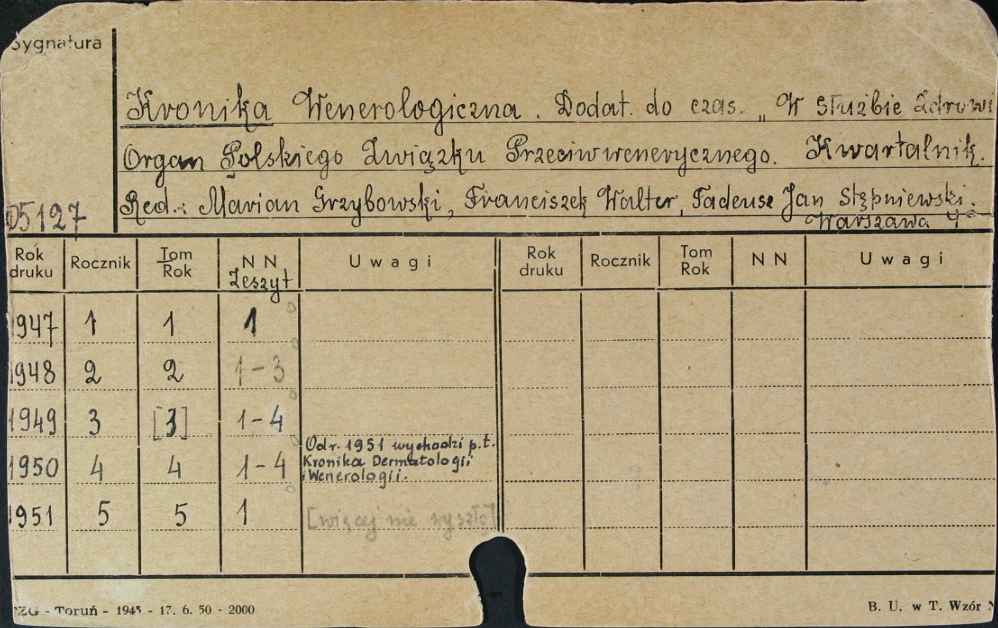 Sygnatura
Kronika Wenerologiczna. Dodat. do czas. „W Służbie Zdrowi
Organ Polskiego Związku Przeciwwenerycznego. Kwartalnik.
Red.: Marian Grzybowski, Franciszek Walter, Tadeusz Jan Stępniewski.
05127 Warszawa 4°
Rok druku Rocznik Tom Rok NN Zeszyt Uwagi Rok druku Rocznik Tom Rok NN Uwagi
1947 1 1 1
1948 2 2 1-3
1949 3 [3] 1-4
Od r. 1951 wychodzi p.t.
1950 4 4 1-4 Kronika Dermatologii
i Wenerologii.
1951 5 5 1 [więcej nie wyszło]
PZG - Toruń - 1945 - 17. 6. 50 - 2000 B. U. w T. Wzór